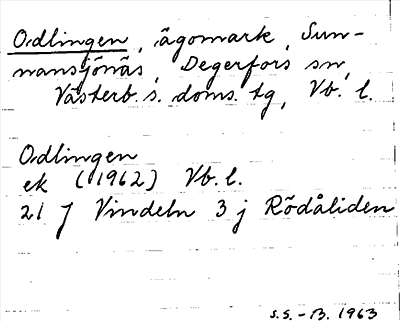 Odlingen, ägomark, Sun-
nansjönäs, Degerfors sn,
Västerb. s. doms. tg, Vb. l.
Odlingen
ek (1962) Vb. l.
21 J Vindeln 3 j Rödåliden
S.S. - B. 1963